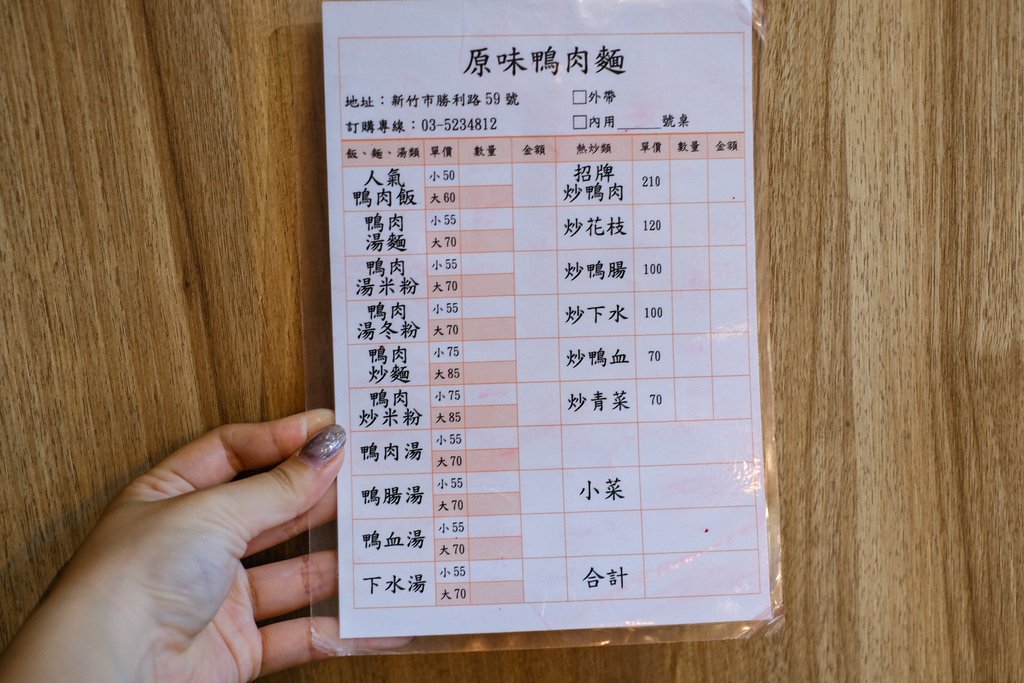 原味鴨肉麵
地址：新竹市勝利路59號 □外帶
訂購專線：03-5234812 □內用______號桌
飯、麵、湯類 單價 數量 金額 熱炒類 單價 數量 金額
人氣鴨肉飯 小50 大60 招牌炒鴨肉 210
鴨肉湯麵 小55 大70 炒花枝 120
鴨肉湯米粉 小55 大70 炒鴨腸 100
鴨肉湯冬粉 小55 大70 炒下水 100
鴨肉炒麵 小75 大85 炒鴨血 70
鴨肉炒米粉 小75 大85 炒青菜 70
鴨肉湯 小55 大70
鴨腸湯 小55 大70 小菜
鴨血湯 小55 大70
下水湯 小55 大70 合計